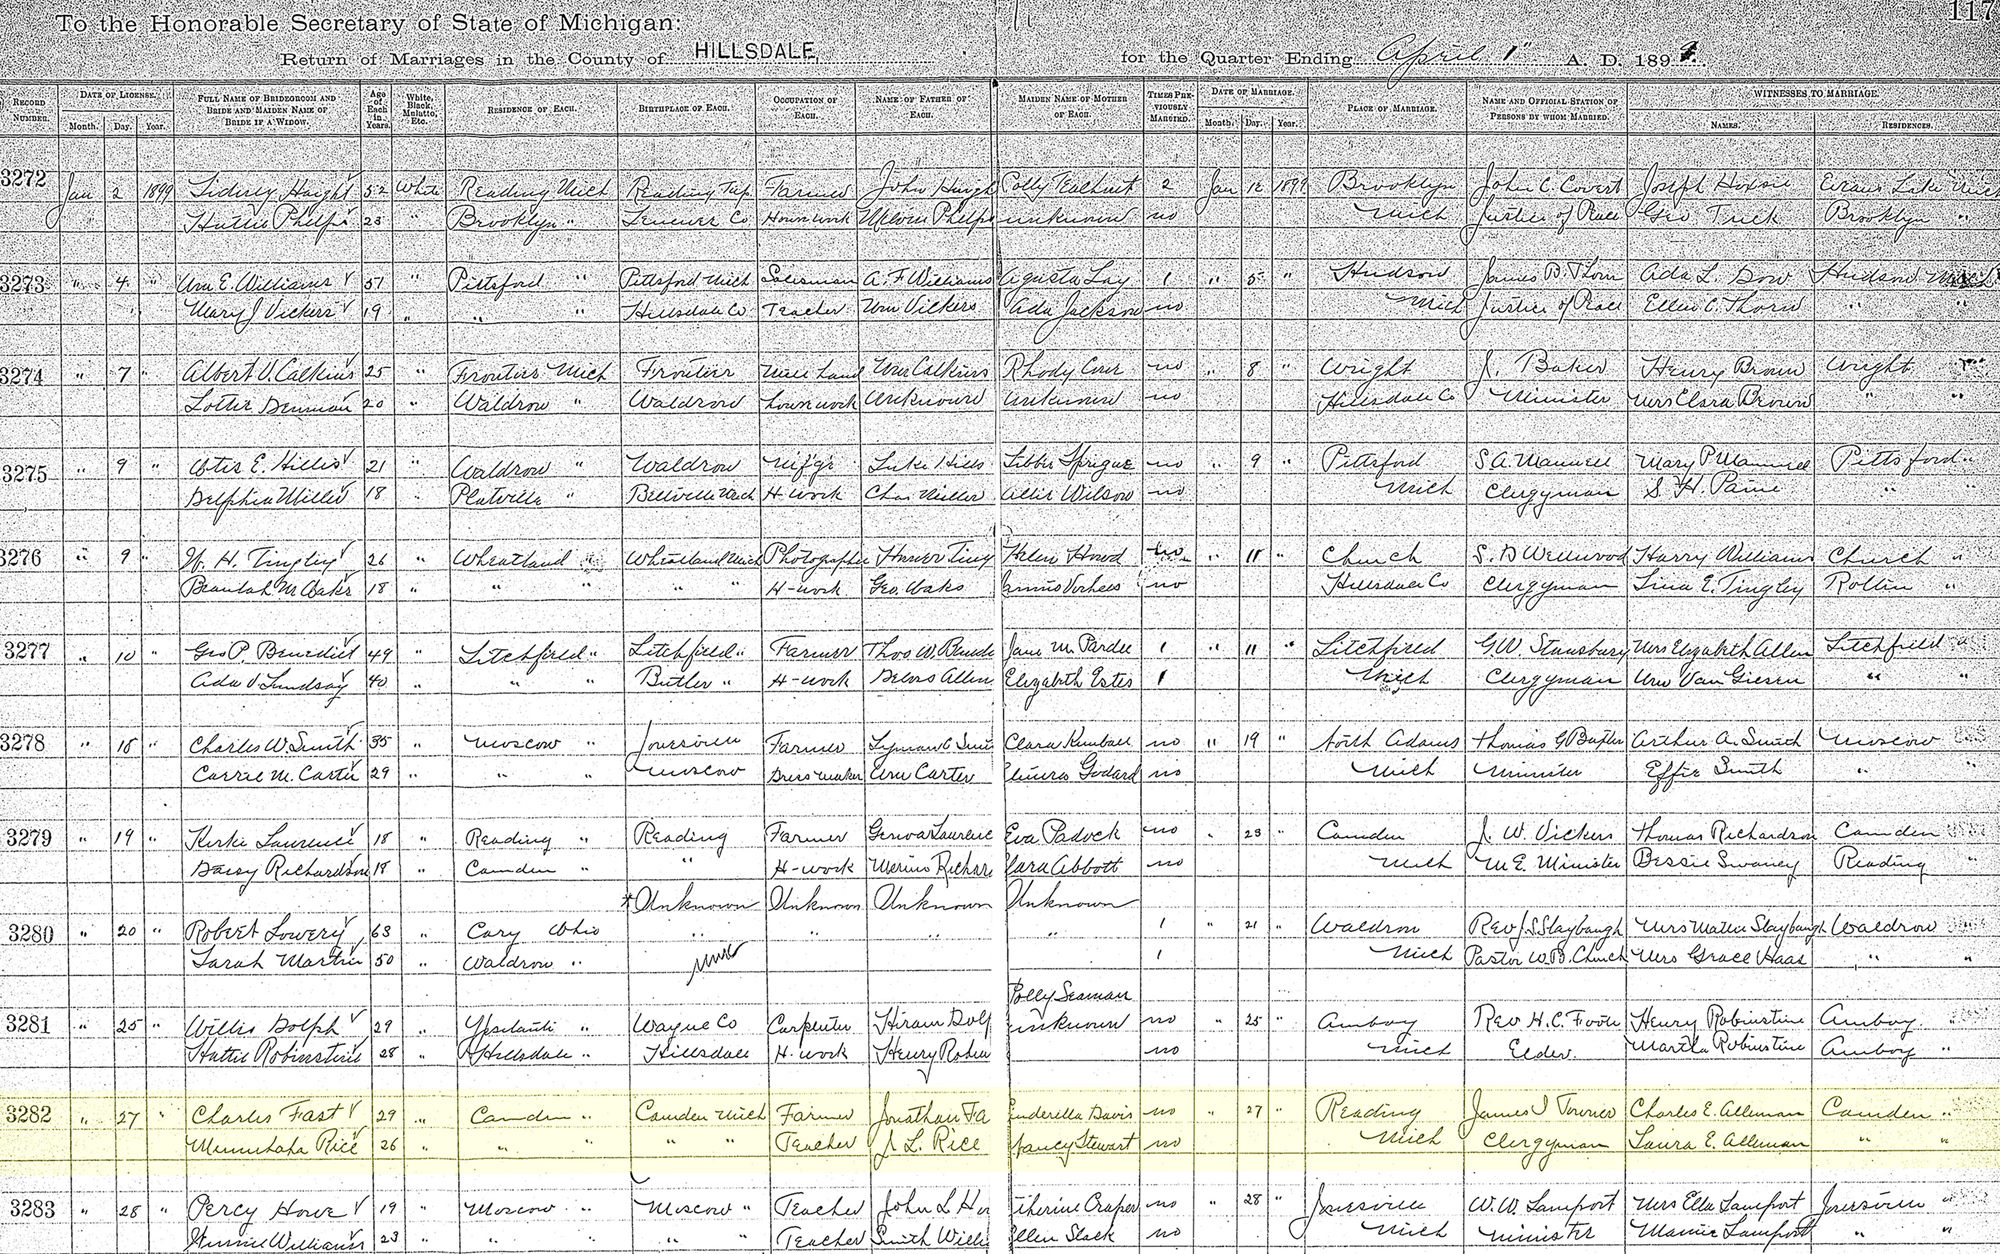 117
To the Honorable Secretary of State of Michigan:
Return of Marriages in the County of HILLSDALE, for the Quarter Ending April 1" A. D. 1899.
RECORD NUMBER. DATE OF LICENSE. Month. Day. Year. FULL NAME OF BRIDEGROOM AND BRIDE AND MAIDEN NAME OF BRIDE IF A WIDOW. Age of Each in Years. White, Black, Mulatto, Etc. RESIDENCE OF EACH. BIRTHPLACE OF EACH. OCCUPATION OF EACH. NAME OF FATHER OF EACH. MAIDEN NAME OF MOTHER OF EACH. TIMES PREVIOUSLY MARRIED. DATE OF MARRIAGE. Month. Day. Year. PLACE OF MARRIAGE. NAME AND OFFICIAL STATION OF PERSONS BY WHOM MARRIED. WITNESSES TO MARRIAGE. NAMES. RESIDENCES.
3272 Jan 2 1899 Haight 52 White Reading Mich Reading Twp Farmer John Haight Polly 2 Jan 12 1899 Brooklyn John C. Covert Joseph Evans Lake Mich
Hattie Phelps 23 " Brooklyn " Co Housework Phelps unknown no Mich Justice of Peace Geo Trick Brooklyn "
3273 " 4 " Wm E. Williams 57 " Pittsford " Pittsford Mich Salesman A. F. Williams Agusta Lay 1 " 5 " Hudson James B. Thorn Ada L. Dow Hudson
Mary J Vickers 19 " " " Hillsdale Co Teacher Wm Vickers Ada Jackson no Mich Justice of Peace Ellen C. Thorn " "
3274 " 7 " Albert V. Calkins 25 " Frontier Mich Frontier Wm Calkins Rhody no " 8 " Wright J. Baker Henry Brown Wright "
Lottie 20 " Waldron " Waldron housework Unknown Unknown no Hillsdale Co Minister Mrs Clara Brown " "
3275 " 9 " E. Hills 21 " Waldron " Waldron Mf'gr Luke Hills Libbie Sprague no " 9 " Pittsford S. A. Mary P Pittsford "
Delphia Miller 18 " " Mich H-work Chas Miller Allie Wilson no Mich Clergyman S. H. Paine " "
3276 " 9 " W. H. Tingley 26 " Wheatland " Wheatland Mich Photographer Homer Ting Helen Howd no " 11 " Church S. D Wellwood Harry Williams Church "
Beaulah M Oaks 18 " " " " H-work Geo. Oaks Vorhees no Hillsdale Co Clergyman Lina E. Tingley Rollin "
3277 " 10 " Geo P. Benedict 49 " Litchfield " Litchfield " Farmer Thos W. Jane M. Pardee 1 " 11 " Litchfield G W. Stansbury Mrs Elizabeth Allen Litchfield "
Ada V Lindsay 40 " " " Butler " H-work Allen Elizabeth Estes 1 Mich Clergyman Wm Van Giesen " "
3278 " 18 " Charles W. Smith 35 " Moscow " Jonesville Farmer Lyman C Smi Clara Kimball no " 19 " North Adams Thomas G Arthur A. Smith Moscow
Carrie M. Carter 29 " " " Moscow Dressmaker Wm Carter Godard no Mich Minister Effie Smith " "
3279 " 19 " Laurence 18 " Reading " Reading Farmer Laurence Eva Padock no " 23 " Camden J. W. Vickers Thomas Richardson Camden
Daisy Richardson 18 " Camden " " H-work Richar Abbott no Mich M. E. Minister Bessie Swaney Reading "
* Unknown Unknown Unknown Unknown
3280 " 20 " Robert Lowery 63 " Cary Ohio " " " " 1 " 21 " Waldron Rev J. S Slaybaugh Mrs Mattie Slaybaugh Waldron "
Sarah Martin 50 " Waldron " 1 Mich Pastor W. B. Church Mrs Grace Haas " "
Polly Seaman
3281 " 25 " Willis Dolph 29 " Ypsilanti " Wayne Co Carpenter Hiram Dolp unknown no " 25 " Amboy Rev H. C. Foote Henry Robinstine Amboy "
Hattie Robinstine 28 " Hillsdale " Hillsdale H-work Henry Robin no Mich Elder. Martha Robinstine Amboy "
3282 " 27 " Charles Fast 29 " Camden " Camden Mich Farmer Jonathan Fa Davis no " 27 " Reading James I Charles E. Alleman Camden "
Minnehaha Rice 26 " " " " " Teacher J. L. Rice Nancy Stewart no Mich Clergyman Laura E. Alleman " "
3283 " 28 " Percy Howe 19 " Moscow " Moscow " Teacher John L Ho no " 28 " Jonesville W. W. Lamport Mrs Ella Lamport Jonesville "
Williams 23 " " " " " Teacher Smith Willi Ellen Slack no Mich Minister Mamie Lamport " "